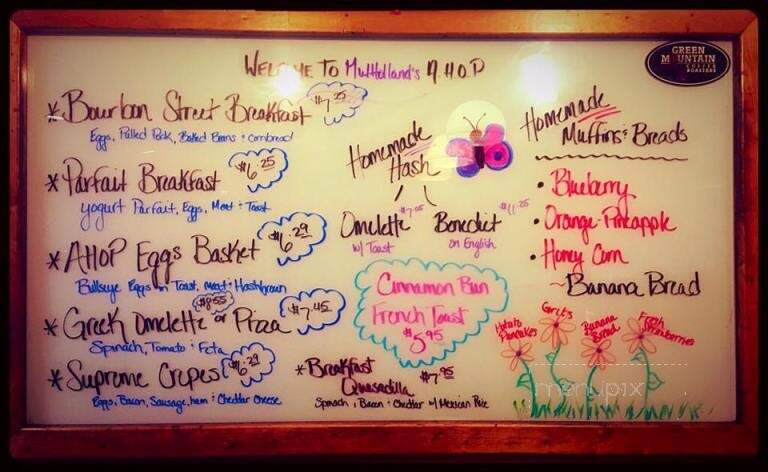 WELCOME TO Mulholland's A.H.O.P
GREEN MOUNTAIN COFFEE ROASTERS
* Bourbon Street Breakfast $7.25
Eggs, Pulled Pork, Baked Beans & Cornbread
* Parfait Breakfast $6.25
Yogurt Parfait, Eggs, Meat & Toast
* AHOP Eggs Basket $6.29
Bullseye Eggs in Toast, Meat & Hashbrown
* Greek Omelette $8.55 or Pizza $7.45
Spinach, Tomato & Feta
* Supreme Crepes $6.29
Eggs, Bacon, Sausage, ham & Cheddar Cheese
Homemade
Hash
Omelette
w/ Toast
Benedict
on English
Cinnamon Bun
French Toast
$5.95
* Breakfast
Quesadilla $7.95
Spinach, Bacon & Cheddar w/ Mexican Rice
Homemade
Muffins & Breads
• Blueberry
• Orange-Pineapple
• Honey Corn
~ Banana Bread
Potato
Pancakes
Grits
Banana
Bread
Fresh
Strawberries
menupix